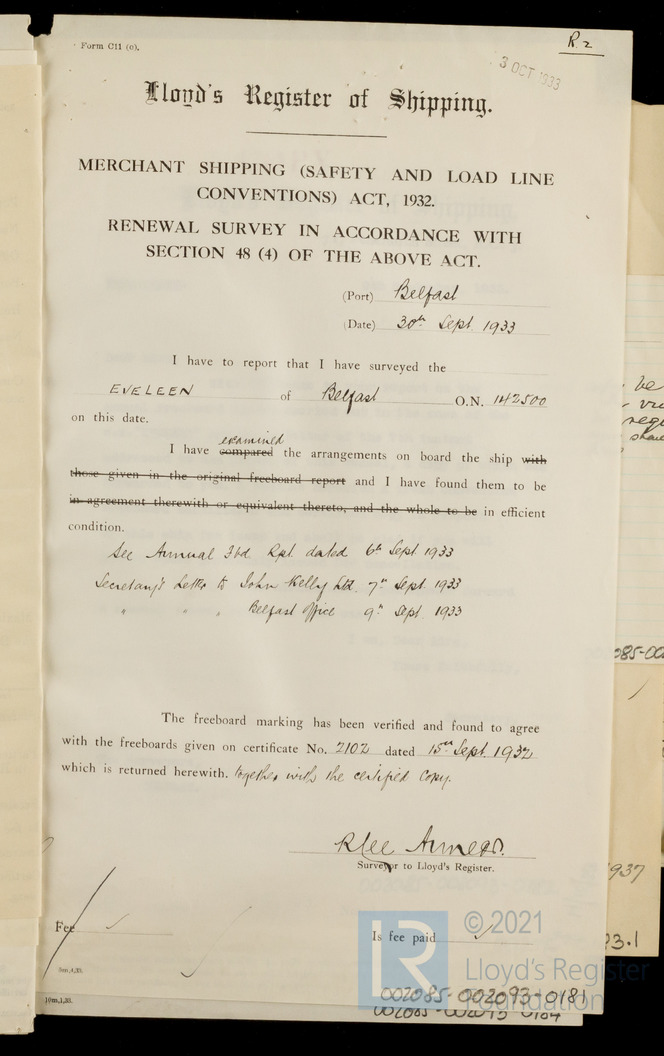 Form C11 (o).
R.2
3 OCT 1933
Lloyd's Register of Shipping.
MERCHANT SHIPPING (SAFETY AND LOAD LINE
CONVENTIONS) ACT, 1932.
RENEWAL SURVEY IN ACCORDANCE WITH
SECTION 48 (4) OF THE ABOVE ACT.
(Port) Belfast
(Date) 30th Sept 1933
I have to report that I have surveyed the
EVELEEN of Belfast O.N. 142500
on this date.
examined
I have compared the arrangements on board the ship with
those given in the original freeboard report and I have found them to be
in agreement therewith or equivalent thereto, and the whole to be in efficient
condition.
See Annual Fbd Rpt dated 6th Sept 1933
Secretary's Letter to John Kelly Ltd. 7th Sept. 1933
" " " Belfast Office 9th Sept. 1933
The freeboard marking has been verified and found to agree
with the freeboards given on certificate No. 2102 dated 15th Sept. 1932
which is returned herewith. together with the certified copy.
Surveyor to Lloyd's Register.
Fee
Is fee paid
3m,4,33.
10m,1,33.
© 2021
Lloyd's Register
Foundation
002085-002093-0181
002085-002093-0184
be
085-00
1937
93.1